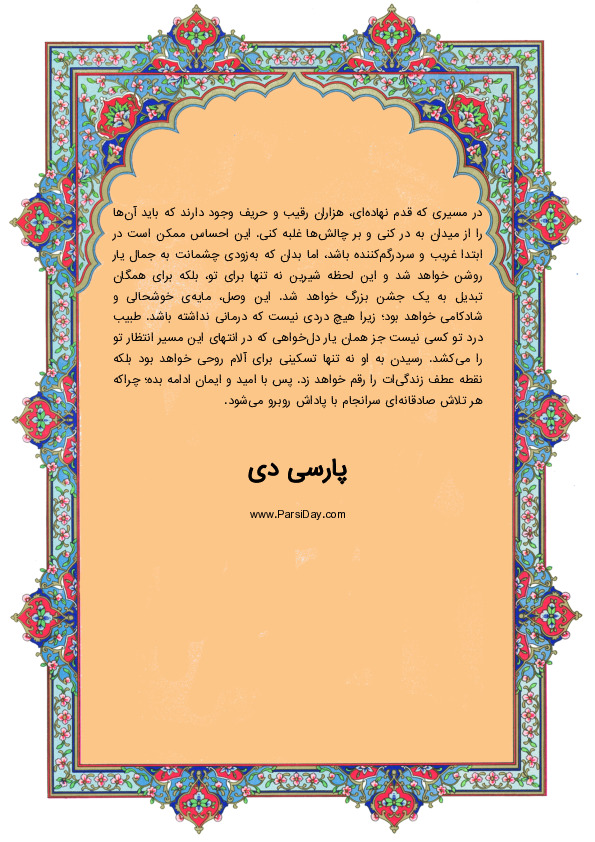 در مسیری که قدم نهاده‌ای، هزاران رقیب و حریف وجود دارند که باید آن‌ها
را از میدان به در کنی و بر چالش‌ها غلبه کنی. این احساس ممکن است در
ابتدا غریب و سردرگم‌کننده باشد، اما بدان که به‌زودی چشمانت به جمال یار
روشن خواهد شد و این لحظه شیرین نه تنها برای تو، بلکه برای همگان
تبدیل به یک جشن بزرگ خواهد شد. این وصل، مایه‌ی خوشحالی و
شادکامی خواهد بود؛ زیرا هیچ دردی نیست که درمانی نداشته باشد. طبیب
درد تو کسی نیست جز همان یار دل‌خواهی که در انتهای این مسیر انتظار تو
را می‌کشد. رسیدن به او نه تنها تسکینی برای آلام روحی خواهد بود بلکه
نقطه عطف زندگی‌ات را رقم خواهد زد. پس با امید و ایمان ادامه بده؛ چراکه
هر تلاش صادقانه‌ای سرانجام با پاداش روبرو می‌شود.
پارسی دی
www.ParsiDay.com